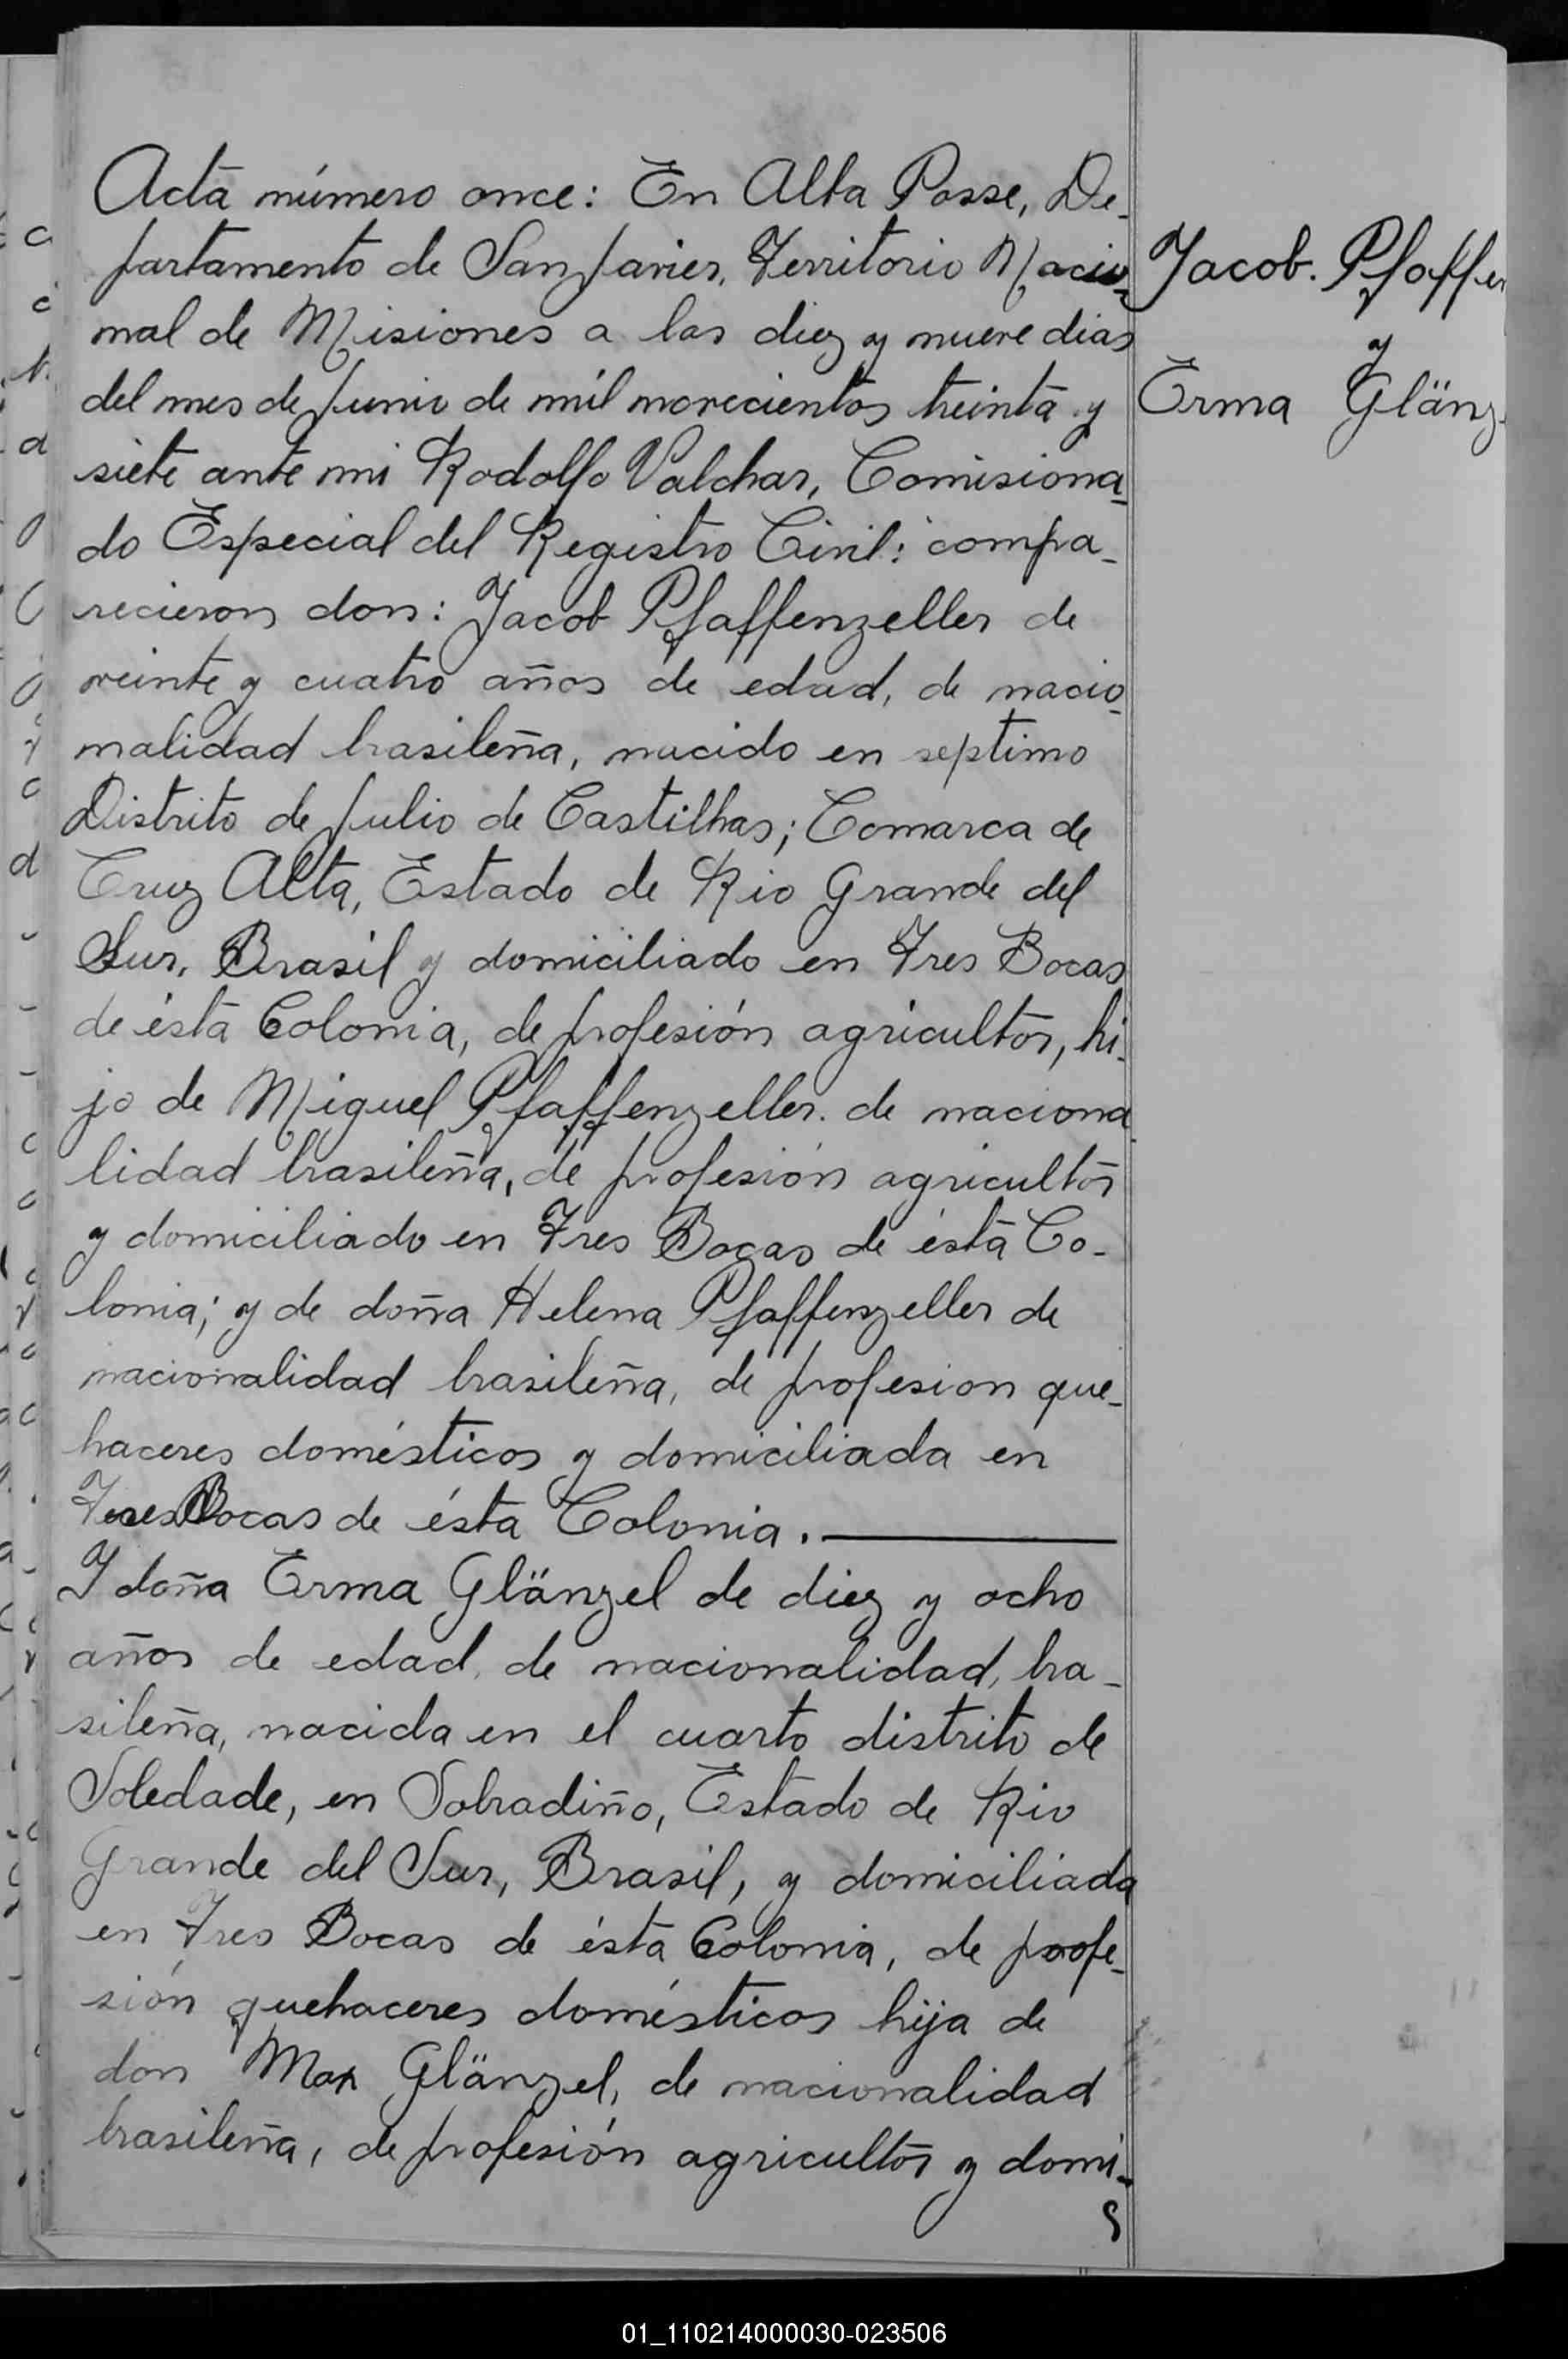 Acta número once: En Alba Posse, De-
partamento de San Javier, Territorio Nacio-
nal de Misiones a los diez y nueve dias
del mes de Junio de mil novecientos treinta y
siete ante mi Rodolfo Valchar, Comisiona-
do Especial del Registro Civil: compa-
recieron don: Jacob Pfaffenzeller de
veinte y cuatro años de edad, de nacio-
nalidad brasileña, nacido en septimo
Distrito de Julio de Castilhas; Comarca de
Cruz Alta, Estado de Rio Grande del
Sur, Brasil y domiciliado en Tres Bocas
de ésta Colonia, de profesión agricultor, hi-
jo de Miguel Pfaffenzeller. de naciona-
lidad brasileña, de profesión agricultor
y domiciliado en Tres Bocas de ésta Co-
lonia; y de doña Helena Pfaffenzeller de
nacionalidad brasileña, de profesion que-
haceres domésticos y domiciliada en
Tres Bocas de ésta Colonia.
Y doña Erma Glänzel de diez y ocho
años de edad, de nacionalidad, bra-
sileña, nacida en el cuarto distrito de
Soledade, en Sobradiño, Estado de Rio
Grande del Sur, Brasil, y domiciliada
en Tres Bocas de ésta Colonia, de profe-
sión quehaceres domésticos hija de
don Max Glänzel, de nacionalidad
brasileña, de profesión agricultor y domi-
Jacob. Pfaffen
y
Erma Glänz
01_110214000030-023506